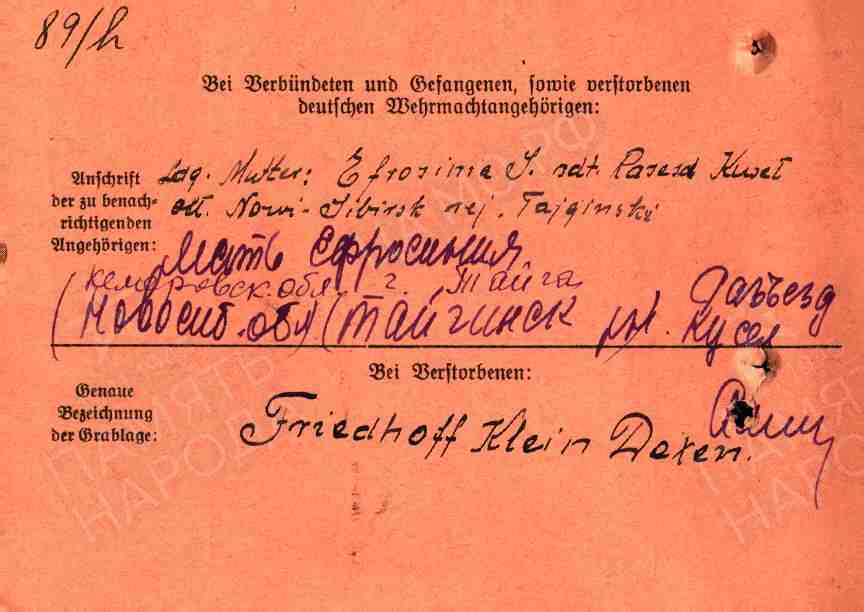 89/h
Bei Verbündeten und Gefangenen, sowie verstorbenen
deutschen Wehrmachtangehörigen:
Anschrift
der zu benach-
richtigenden
Angehörigen:
Mutter: Efrosima S. sdt. Rasesd Kuset
Nowi-Sibirsk rej. Tajginski
Мать Ефросиния
Кемеровск. обл. г. Тайга
(Новосиб. обл) (Тайгинск рн. разъезд
Кусел
Bei Verstorbenen:
Genaue
Bezeichnung
der Grablage:
Friedhoff Klein Dexen.
ПАМЯТЬ
НАРОДА